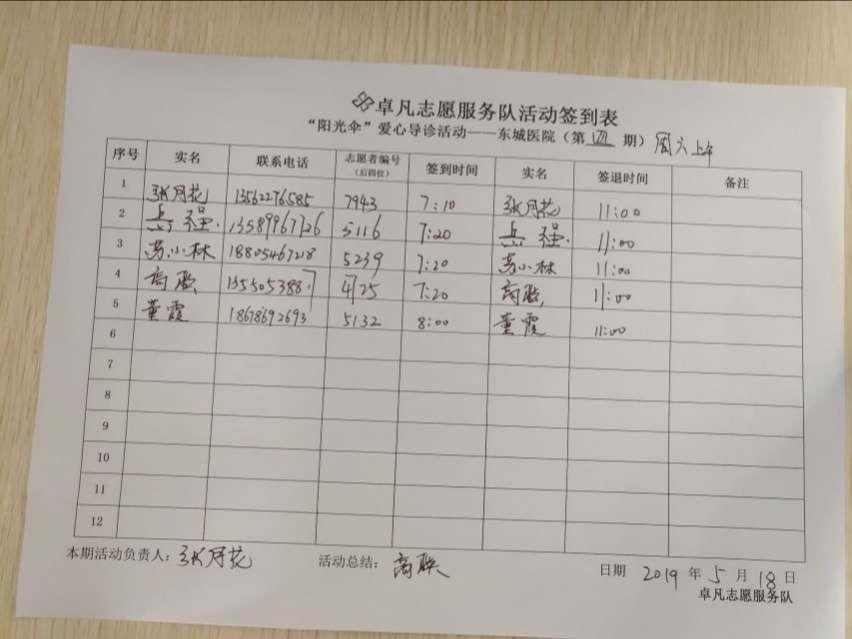 卓凡志愿服务队活动签到表
“阳光伞”爱心导诊活动——东城医院（第 四 期） 周六上午
序号 实名 联系电话 志愿者编号（后四位） 签到时间 实名 签退时间 备注
1 张月花 13562276585 7943 7:10 张月花 11:00
2 强 13589967726 5116 7:20 强 11:00
3 苏小林 18805467218 5239 7:20 苏小林 11:00
4 高联 4725 7:20 高联 11:00
5 董霞 18678692693 5132 8:00 董霞 11:00
6
7
8
9
10
11
12
本期活动负责人：张月花 活动总结：高联 日期 2019 年 5 月 18 日
卓凡志愿服务队